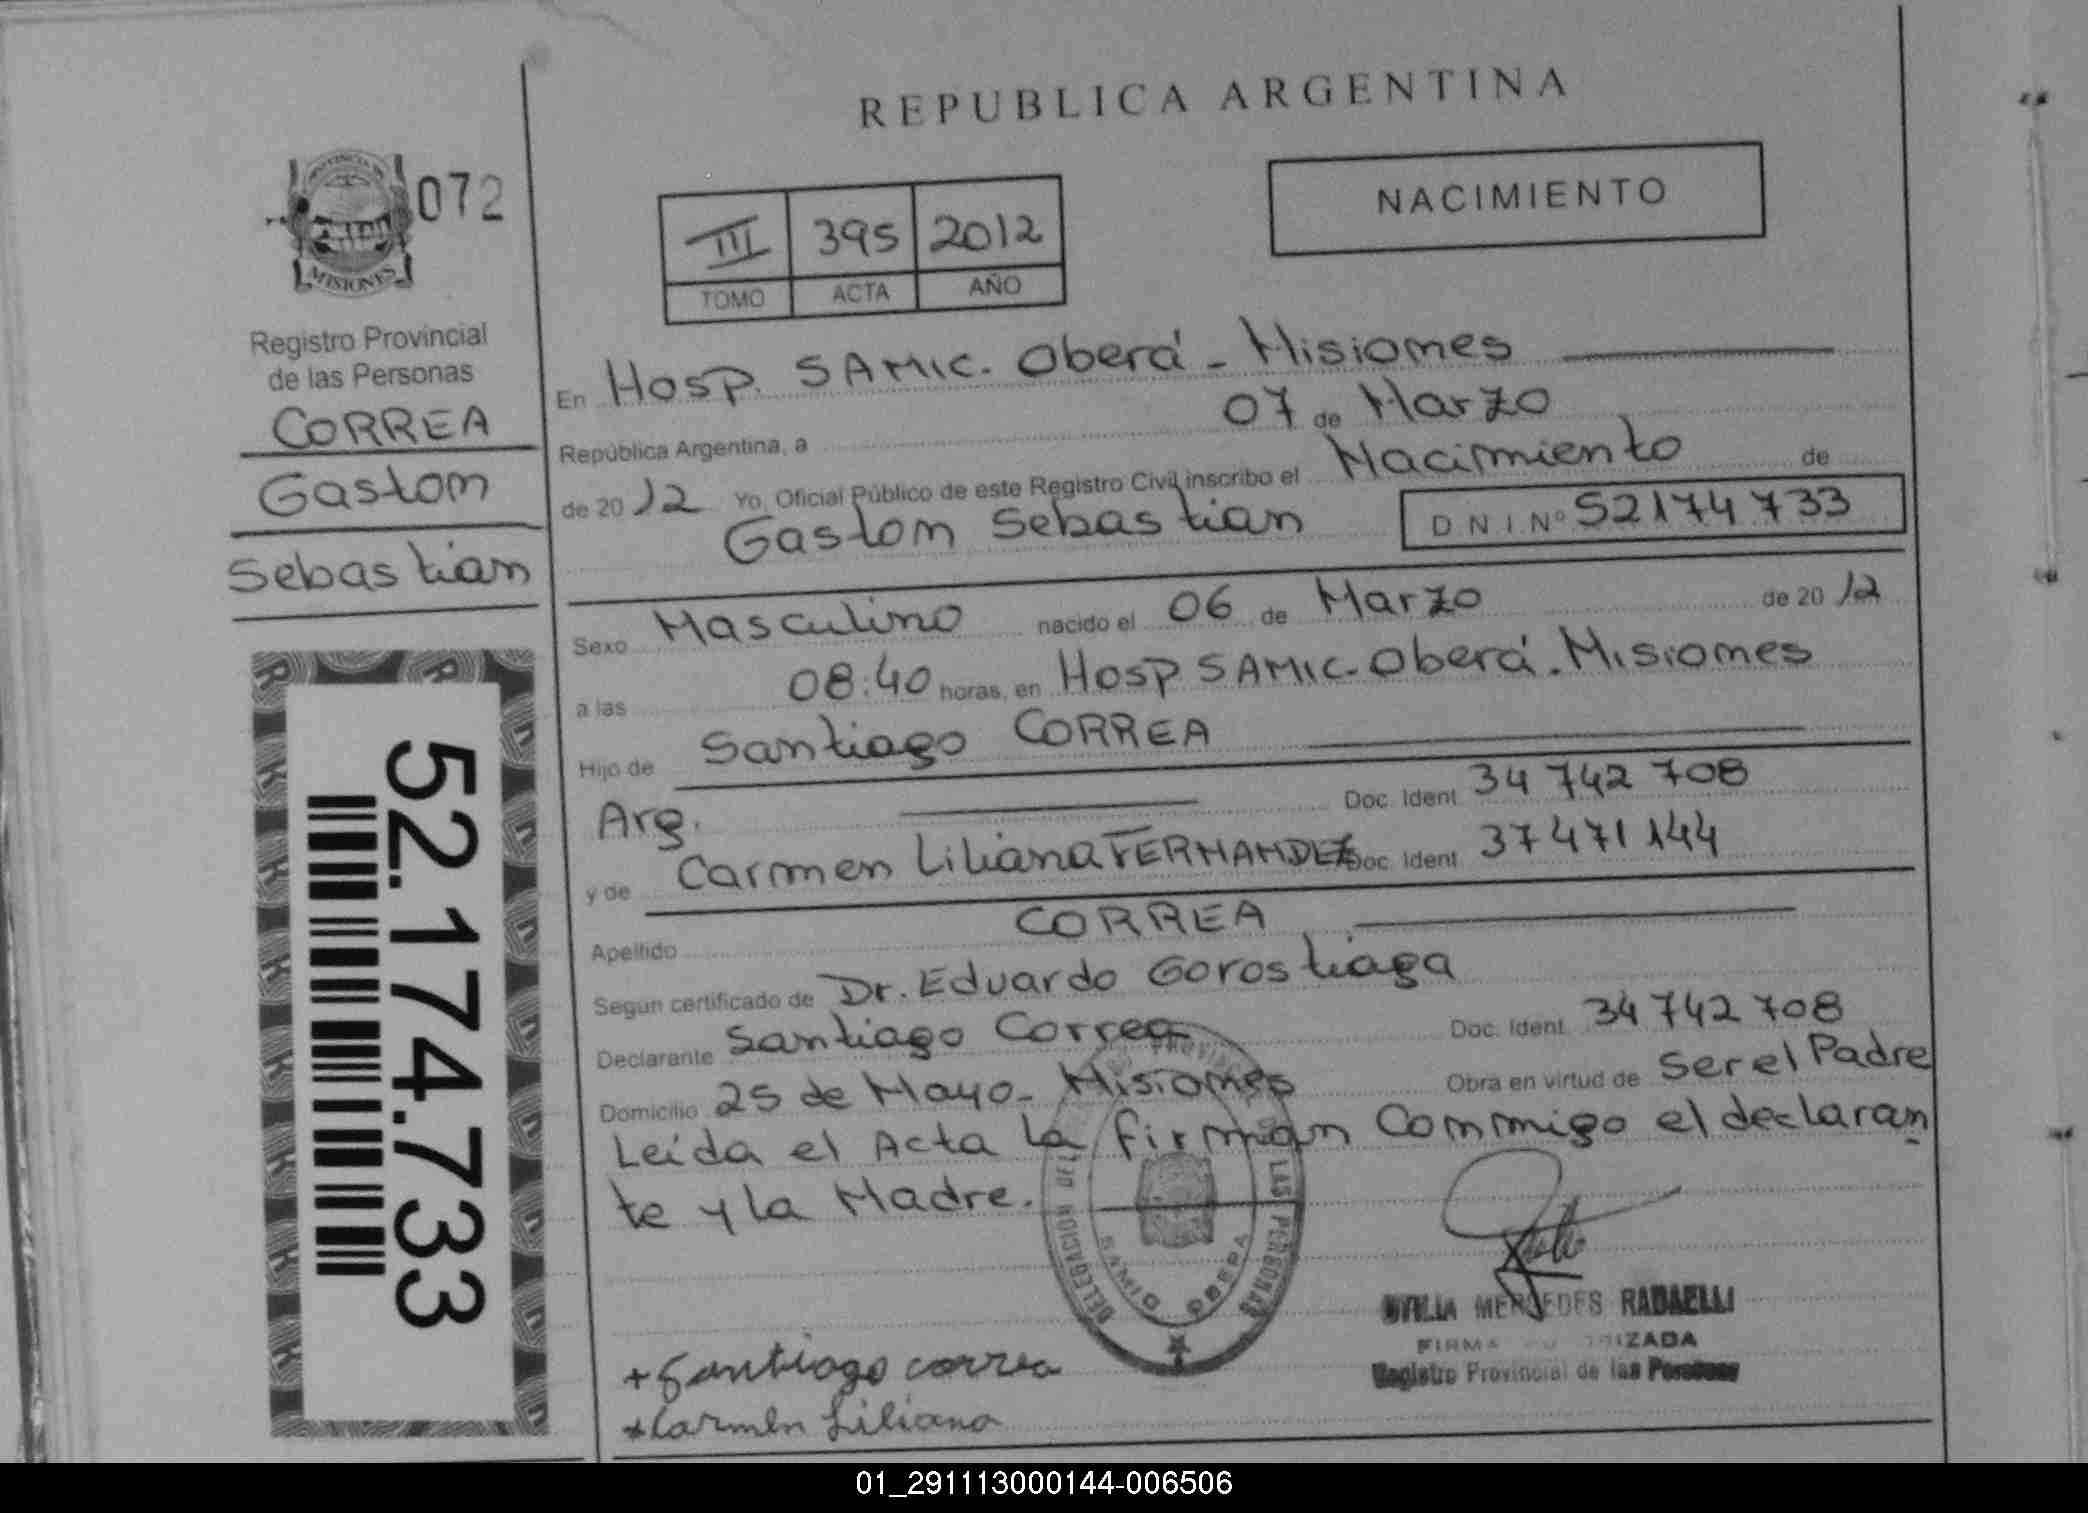 REPUBLICA ARGENTINA
PROVINCIA DE
MISIONES
072
Registro Provincial
de las Personas
CORREA
Gaston
Sebastian
52.174.733
III 395 2012
TOMO ACTA AÑO
NACIMIENTO
En Hosp. SAMIC. Oberá - Misiones
República Argentina, a 07 de Marzo
de 2012 Yo, Oficial Público de este Registro Civil inscribo el Nacimiento de
Gaston Sebastian D N I Nº 52174733
Sexo Masculino nacido el 06 de Marzo de 2012
a las 08:40 horas, en Hosp SAMIC. Oberá. Misiones
Hijo de Santiago CORREA
Arg. Doc. Ident 34 742 708
y de Carmen Liliana FERNANDEZ Doc. Ident 37471144
Apellido CORREA
Según certificado de Dr. Eduardo Gorostiaga
Declarante Santiago Correa Doc. Ident. 34 742 708
Domicilio 25 de Mayo - Misiones Obra en virtud de Ser el Padre
Leída el Acta la firman Conmigo el declaran
te y la Madre.
DELEGACION DEL PROVINCIAL DE LAS PERSONAS
SAMIC OBERA
MERCEDES RADAELLI
FIRMA AUTORIZADA
Registro Provincial de las Personas
+Santiago correa
+Carmen Liliana
01_291113000144-006506